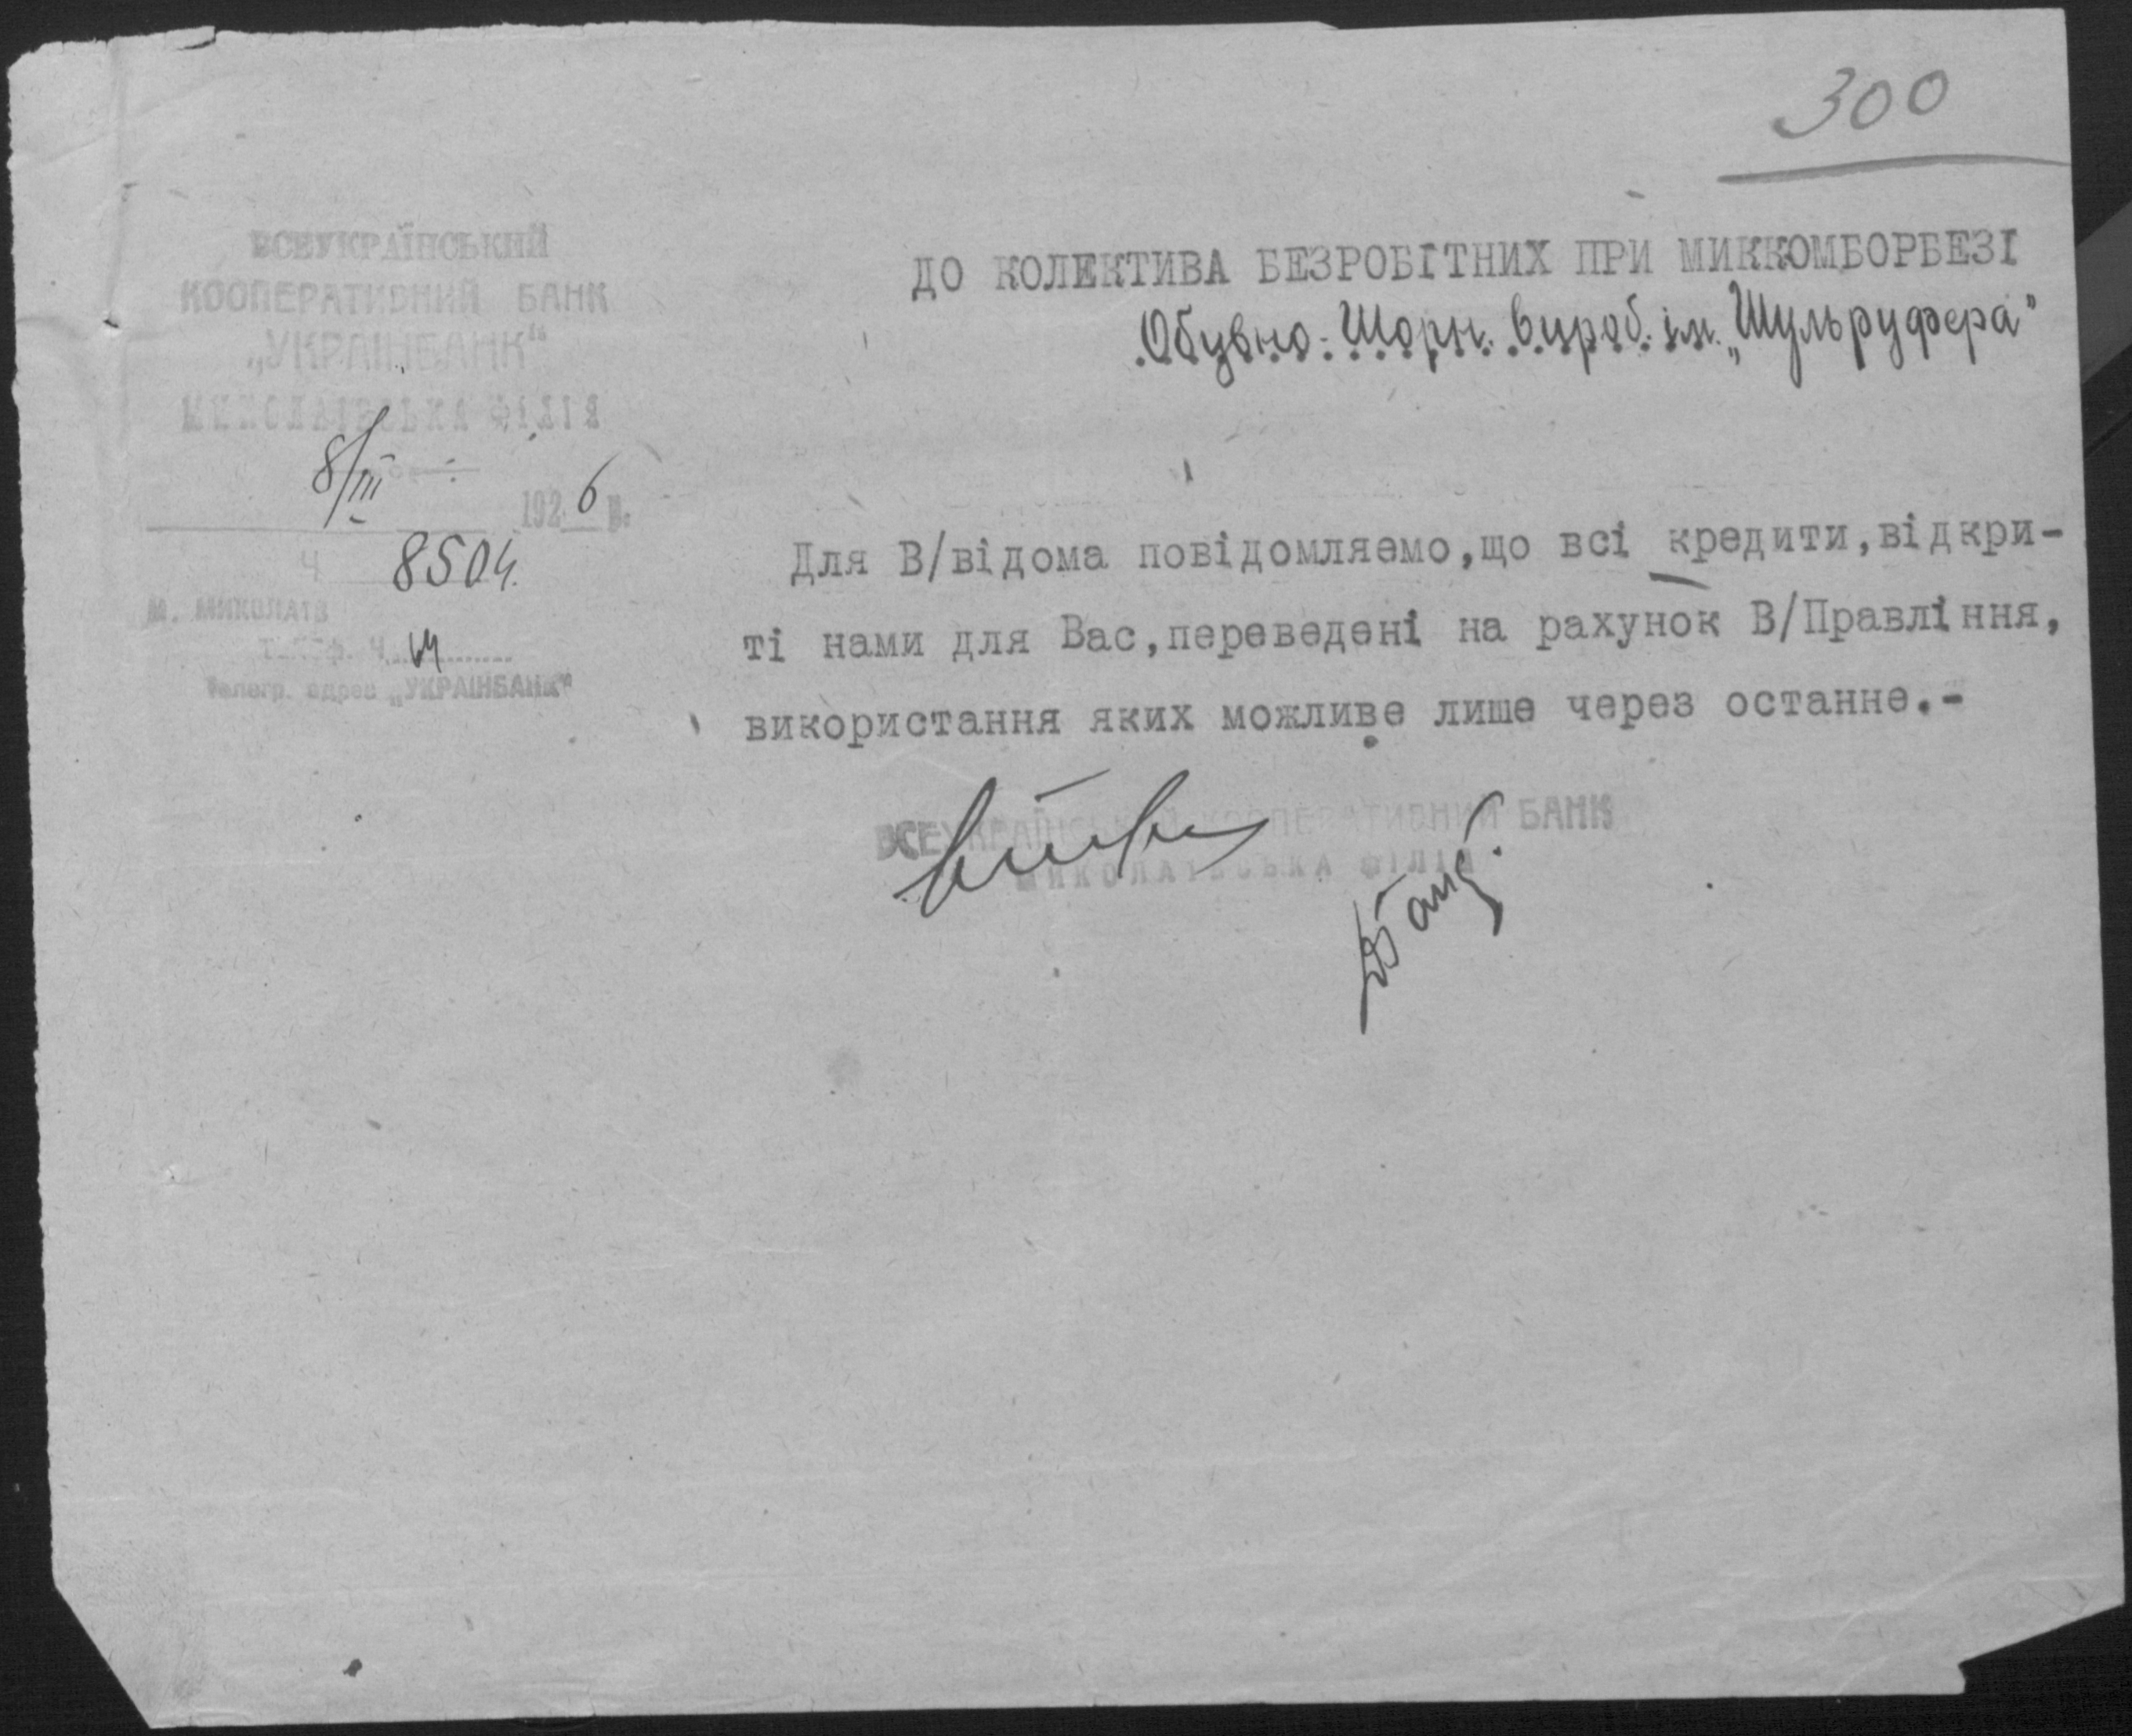 300
ВСЕУКРАЇНСЬКИЙ
КООПЕРАТИВНИЙ БАНК
„УКРАІНБАНК"
МИКОЛАІВСЬКА ФІЛІЯ
8/III 1926 р.
Ч 8504.
М. МИКОЛАІВ
Телеф. Ч.
Телегр. адрес „УКРАІНБАНК"
ДО КОЛЕКТИВА БЕЗРОБІТНИХ ПРИ МИККОМБОРБЕЗІ
Обувно-Шорн. вироб. ім. „Шульруфера"
Для В/відома повідомляємо,що всі кредити,відкри-
ті нами для Вас,переведені на рахунок В/Правління,
використання яких можливе лише через останнє.-
ВСЕУКРАЇНСЬКИЙ КООПЕРАТИВНИЙ БАНК
МИКОЛАІВСЬКА ФІЛІЯ